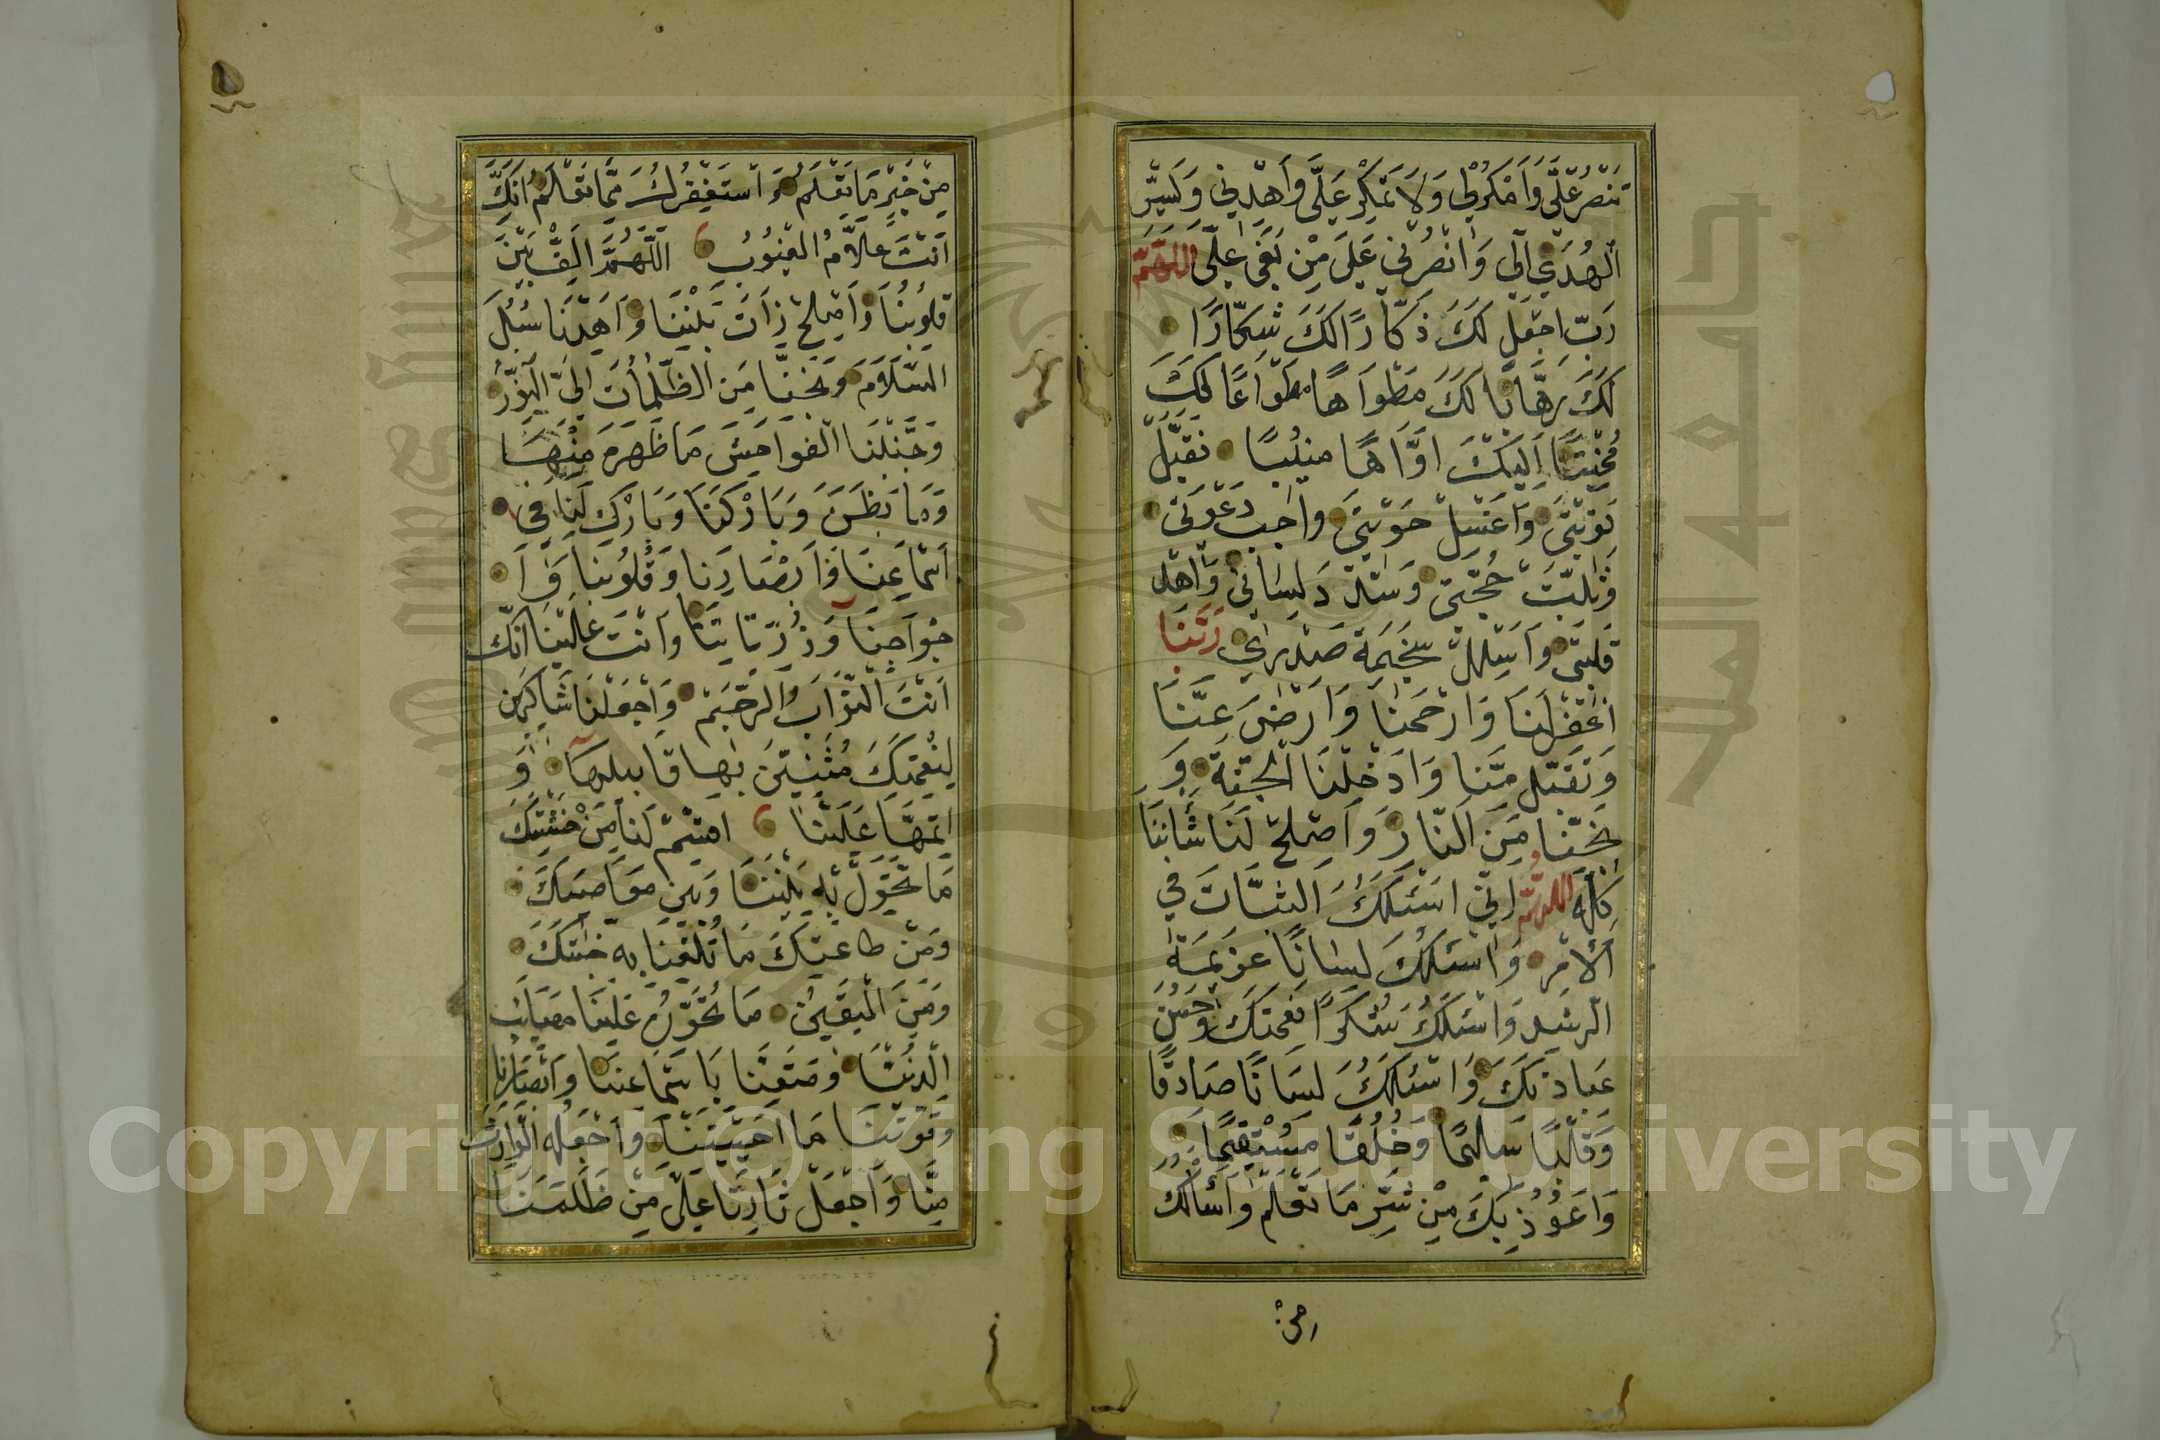 تنصر علي وامكرلي ولا تمكر علي واهدني ويسر
الهدي الي وانصرني علي من بغي علي اللهم
رب اجعل لك ذكارا لك شكارا
لك رهابا لك مطواها مطواعا لك
مخبتا اليك اواها منيبا تقبل
توبتي واغسل حوبتي واجب دعوتي
وثبت حجتي وسدد لساني واهد
قلبي واسلل سخيمة صدري ربنا
اغفرلنا وارحمنا وارض عنا
وتقبل منا وادخلنا الجنة و
نجنا من النار واصلح لنا شاننا
كله اللهم اني اسئلك الثبات في
الامر واسئلك لسانا عزيمة
الرشد واسئلك شكرا نعمتك وحسن
عبادتك واسئلك لسانا صادقا
وقلبا سليما وخلقا مستقيما
واعوذ بك من شر ما تعلم واسالك
من خير ما تعلم واستغفرك مما تعلم انك
انت علام الغيوب اللهم الف بين
قلوبنا واصلح ذات بيننا واهدنا سبل
السلام ونجنا من الظلمات الي النور
وجنبنا الفواحش ما ظهر منها
وما بطن وبارك لنا في
اسماعنا وابصارنا وقلوبنا وا
جواجنا وذرياتنا وانت علينا انك
انت التواب الرحيم واجعلنا شاكرين
لنعمتك مثنين بها قابيلها و
اتمها علينا اقسم لنا من خشيتك
ما تحول به بيننا وبين معاصيك
ومن طاعتك ما تلقنا به جنتك
ومن اليقين ما تهون علينا مصيبات
الدنيا ومتعنا باسماعنا وابصارنا
وقوتنا ما احييتنا واجعله الوارث
منا واجعل ثارنا علي من ظلمنا
من
Copyright © King Saud University
جامعة الملك سعود
1957